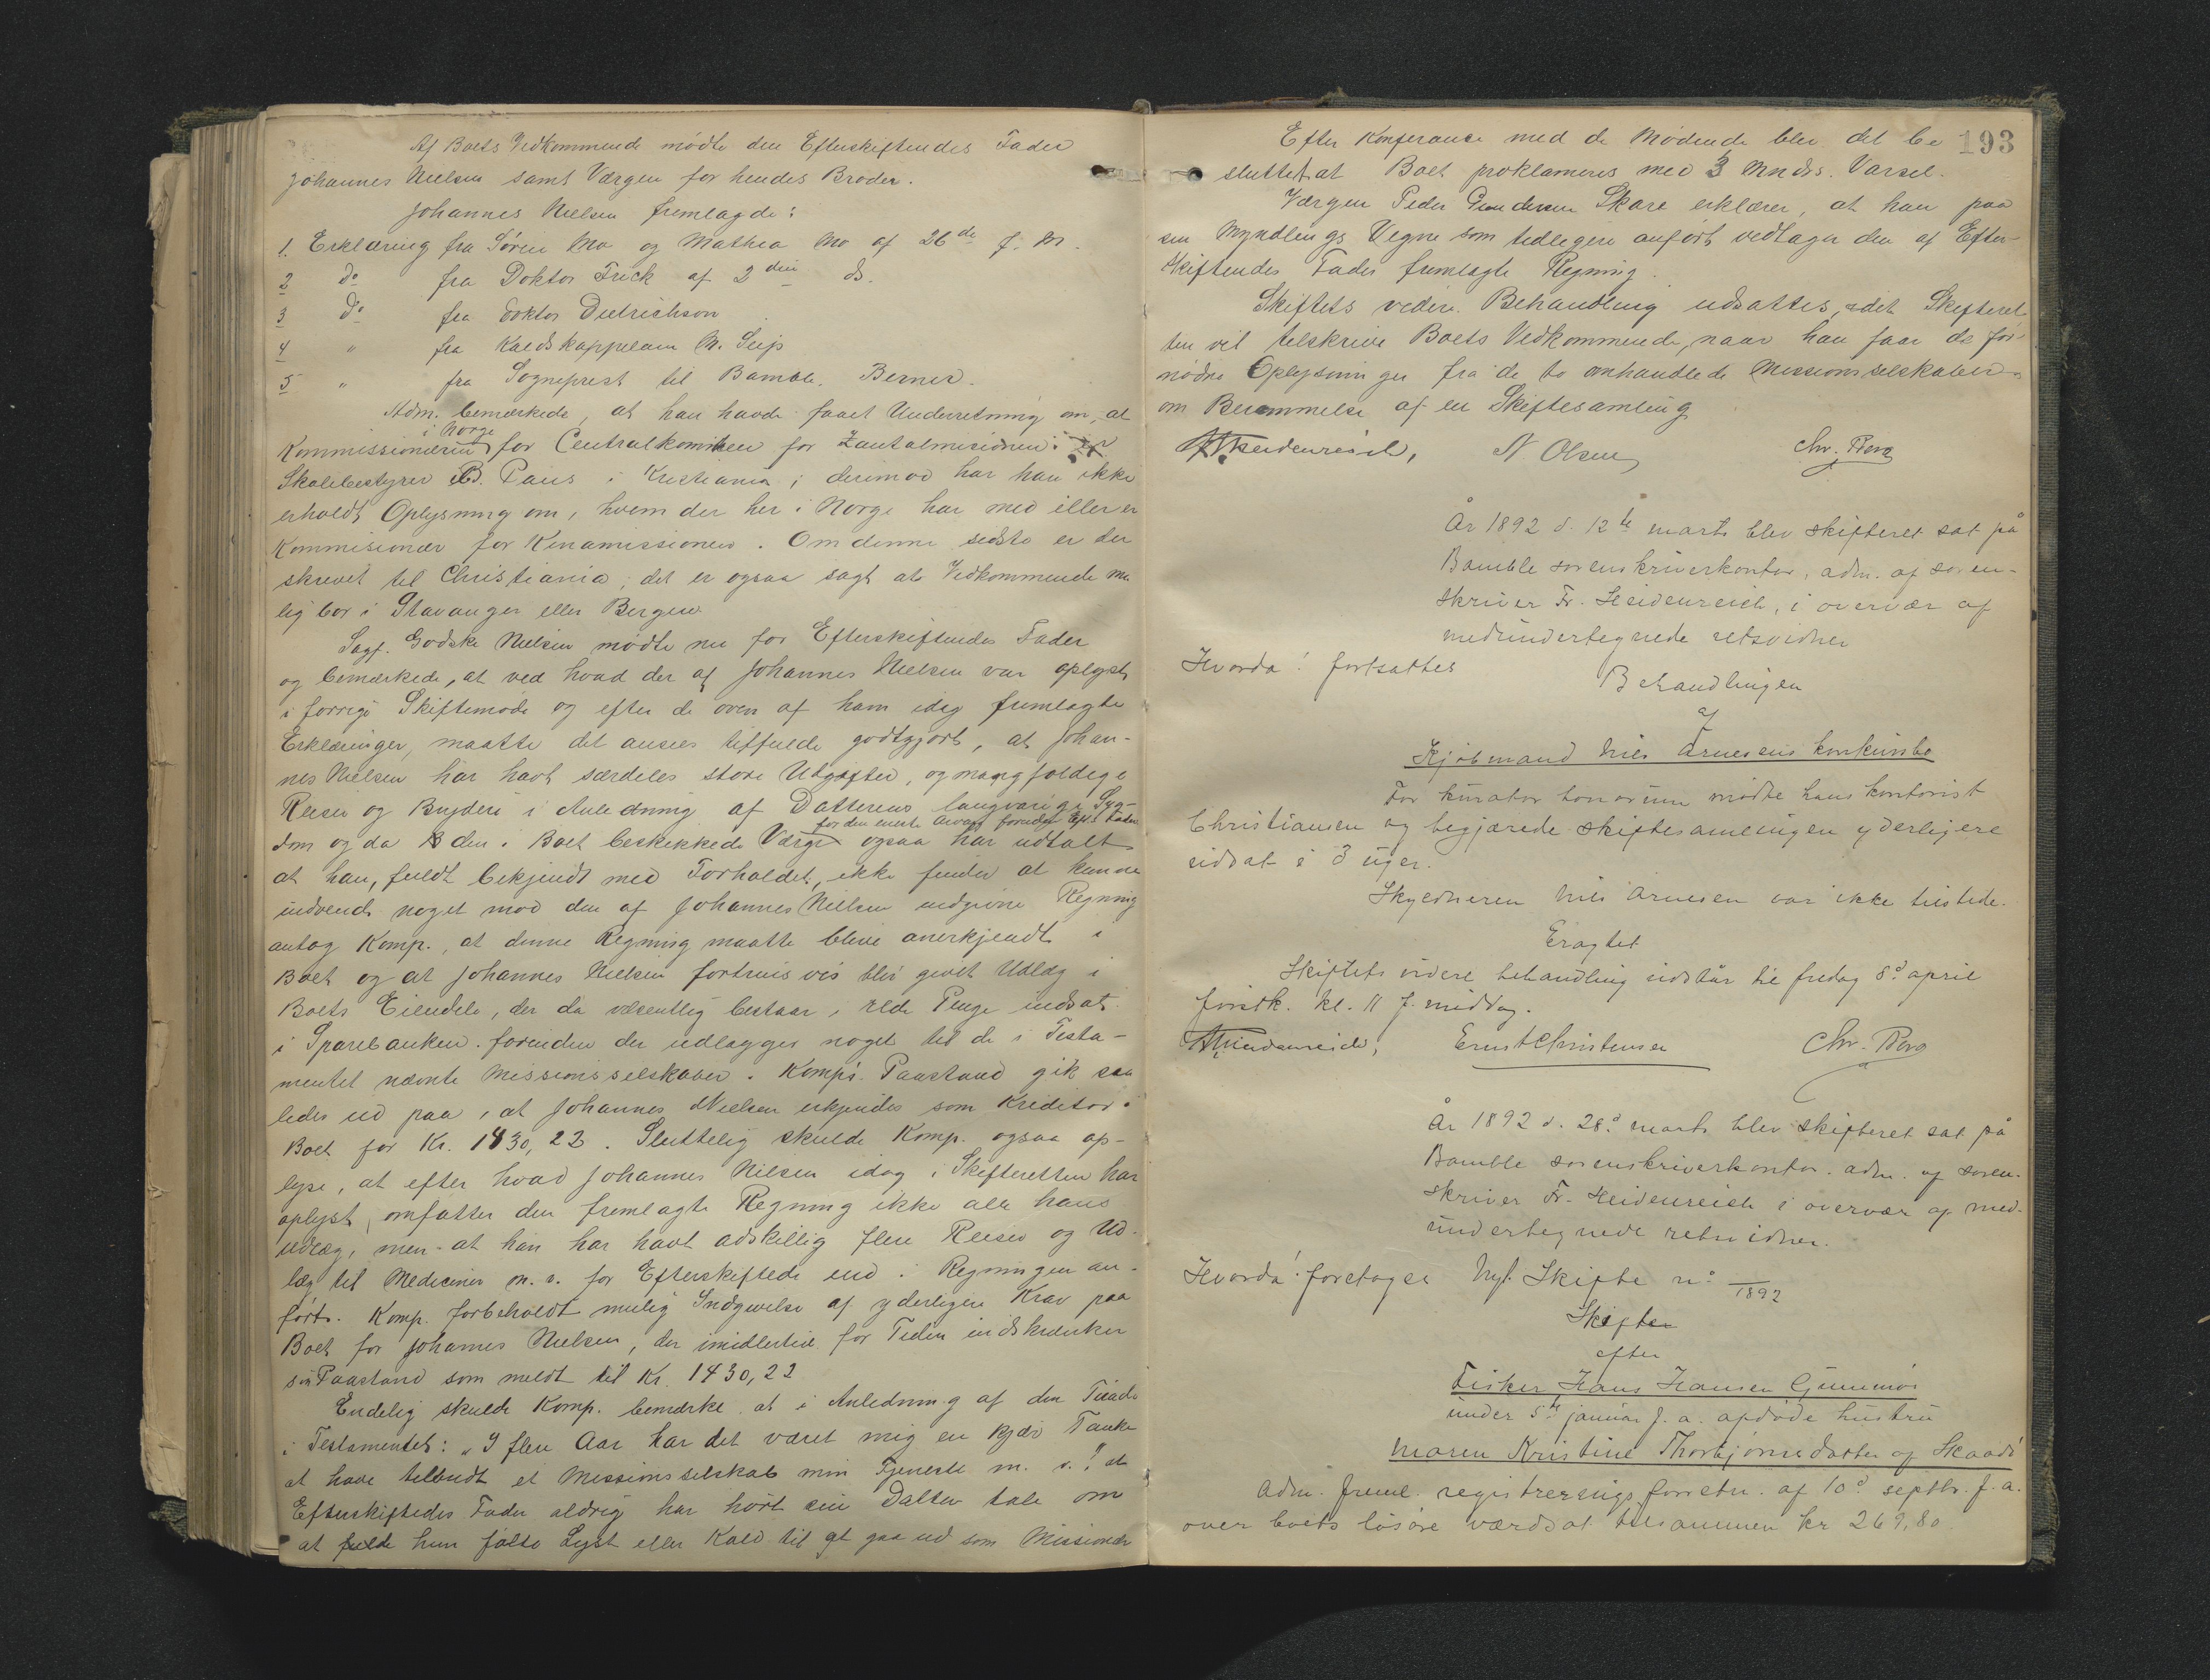 Af Boets Vedkommende mødte den Efterskiftendes Fader
Johannes Nielsen samt Værgen for hendes Broder.
Johannes Nielsen fremlagde:
1. Erklæring fra Søren Mo og Mathea Mo af 26de f. M.
2 do fra Doktor Frick af 2den ds.
3 do fra Doktor Dietrichson
4 " fra Kaldskappelam M. Seip
5 " fra Sogneprest til Bamble, Berner.
Adm. bemærkede, at han havde faaet Underretning om, at
i Norge
Kommissionæren for Centralkomiteen for Zantalmisionen: er
Skolebestyrer B. Paus i Kristiania; derimod har han ikke
erholdt Oplysning om, hvem der her i Norge har med eller er
Kommisionær for Kinamissionen. Om denne sidste er der
skrevet til Christiania; det er ogsaa sagt at Vedkommende mu
lig bor i Stavanger eller Bergen.
Sagf. Godske Nielsen mødte nu for Efterskiftendes Fader
og bemærkede, at ved hvad der af Johannes Nielsen var oplyst
i forrige Skiftemøde og efter de oven af ham idag fremlagte
Erklæringer, maatte det ansees tilfulde godtgjort, at Johan-
nes Nielsen har havt særdeles store Utgifter, og mangfoldige
Reiser og Bryderi i Anledning af Datterens langvarige Syg-
for den eneste Arving foruden Eft.s Fader
dom og da den i Boet beskikkede Værge ogsaa har udtalt
at han, fuldt bekjendt med Forholdet, ikke finder at kunne
indvende noget mod den af Johannes Nielsen indgivne Regning
antog Komp., at denne Regning maatte blive anerkjendt i
Boet og at Johannes Nielsen fortrinsvis blir givet Udlæg i
Boets Eiendele, der da væsentlig bestaar i rede Penge indsat
i Sparebanken. forinden der udlægges noget til de i Testa-
mentet nævnte Missionsselskaber. Komp's. Paastand gik saa
ledes ud paa, at Johannes Nielsen erkjendes som Kreditor i
Boet for Kr. 1430,22. Sluttelig skulde Komp. ogsaa op-
lyse, at efter hvad Johannes Nilsen idag i Skifteretten har
oplyst, omfatter den fremlagte Regning ikke alle hans
udlæg, men at han har havt adskillig flere Reiser og Ud-
læg til Mediciner m. v. for Efterskiftede end i Regningen an-
ført. Komp. forbeholdt mulig Indgivelse af yderligere Krav paa
Boet for Johannes Nielsen, der imidlertid for Tiden indskrænker
sin Paastand som meldt til Kr. 1430,22
Endelig skulde Komp. bemærke at i Anledning af den Tirade
i Testamentet: „I flere Aar har det været mig en kjær Tanke
at have tilbudt et Missionsselskab min Tjeneste m. v.", at
Efterskiftedes Fader aldrig har hørt sin Datter tale om
at hun følte Lyst eller Kald til at gaa ud som Missionær
193
Efter Konferance med de Mødende blev det be
sluttet at Boet proklameres med 3 Mndrs. Varsel.
Værgen Peder Gundersen Skare erklærer, at han paa
sin Myndlings Vegne som tidligere anført vedtager den af Efter-
skiftendes Fader fremlagte Regning.
Skiftets videre Behandling udsattes, idet Skifteret
ten vil tilskrive Boets Vedkommende, naar han faar de for-
nødne Oplysninger fra de to omhandlede Missionsselskaber
om Berammelse af en Skiftesamling
Fr Heidenreich, N Olsen Chr. Berg
År 1892 d. 12te marts blev skifteret sat på
Bamble sorenskriverkontor, adm. af soren-
skriver Fr. Heidenreich, i overvær af
medundertegnede retsvidner
Hvorda! fortsattes
Behandlingen
af
Kjøbmand Nils Arnesens konkursbo
For kurator bonorum mødte hans kontorist
Christiansen og begjærede skiftesamlingen yderligere
udsat i 3 uger.
Skyldneren Nils Arnesen var ikke tilstede.
Eragtet
Skiftets videre behandling udstår til fredag 8d april
førstk. kl. 11 f. middag.
Fr Heidenreich, Ernst Christensen Chr. Berg
År 1892 d. 28d marts blev skifteret sat på
Bamble sorenskriverkontor. adm. af soren-
skriver Fr. Heidenreich i overvær af med-
undertegnede retsvidner.
Hvorda! foretoges Nyt Skifte no —/1892
Skifte
efter
Fisker Hans Hansen
under 5te januar f. a. afdøde hustru
Maren Kristine Thorbjørnsdatter af
Adm. freml. registreringsforretn. af 10d septbr. f. a.
over boets løsøre værdsat tilsammen kr 269,80